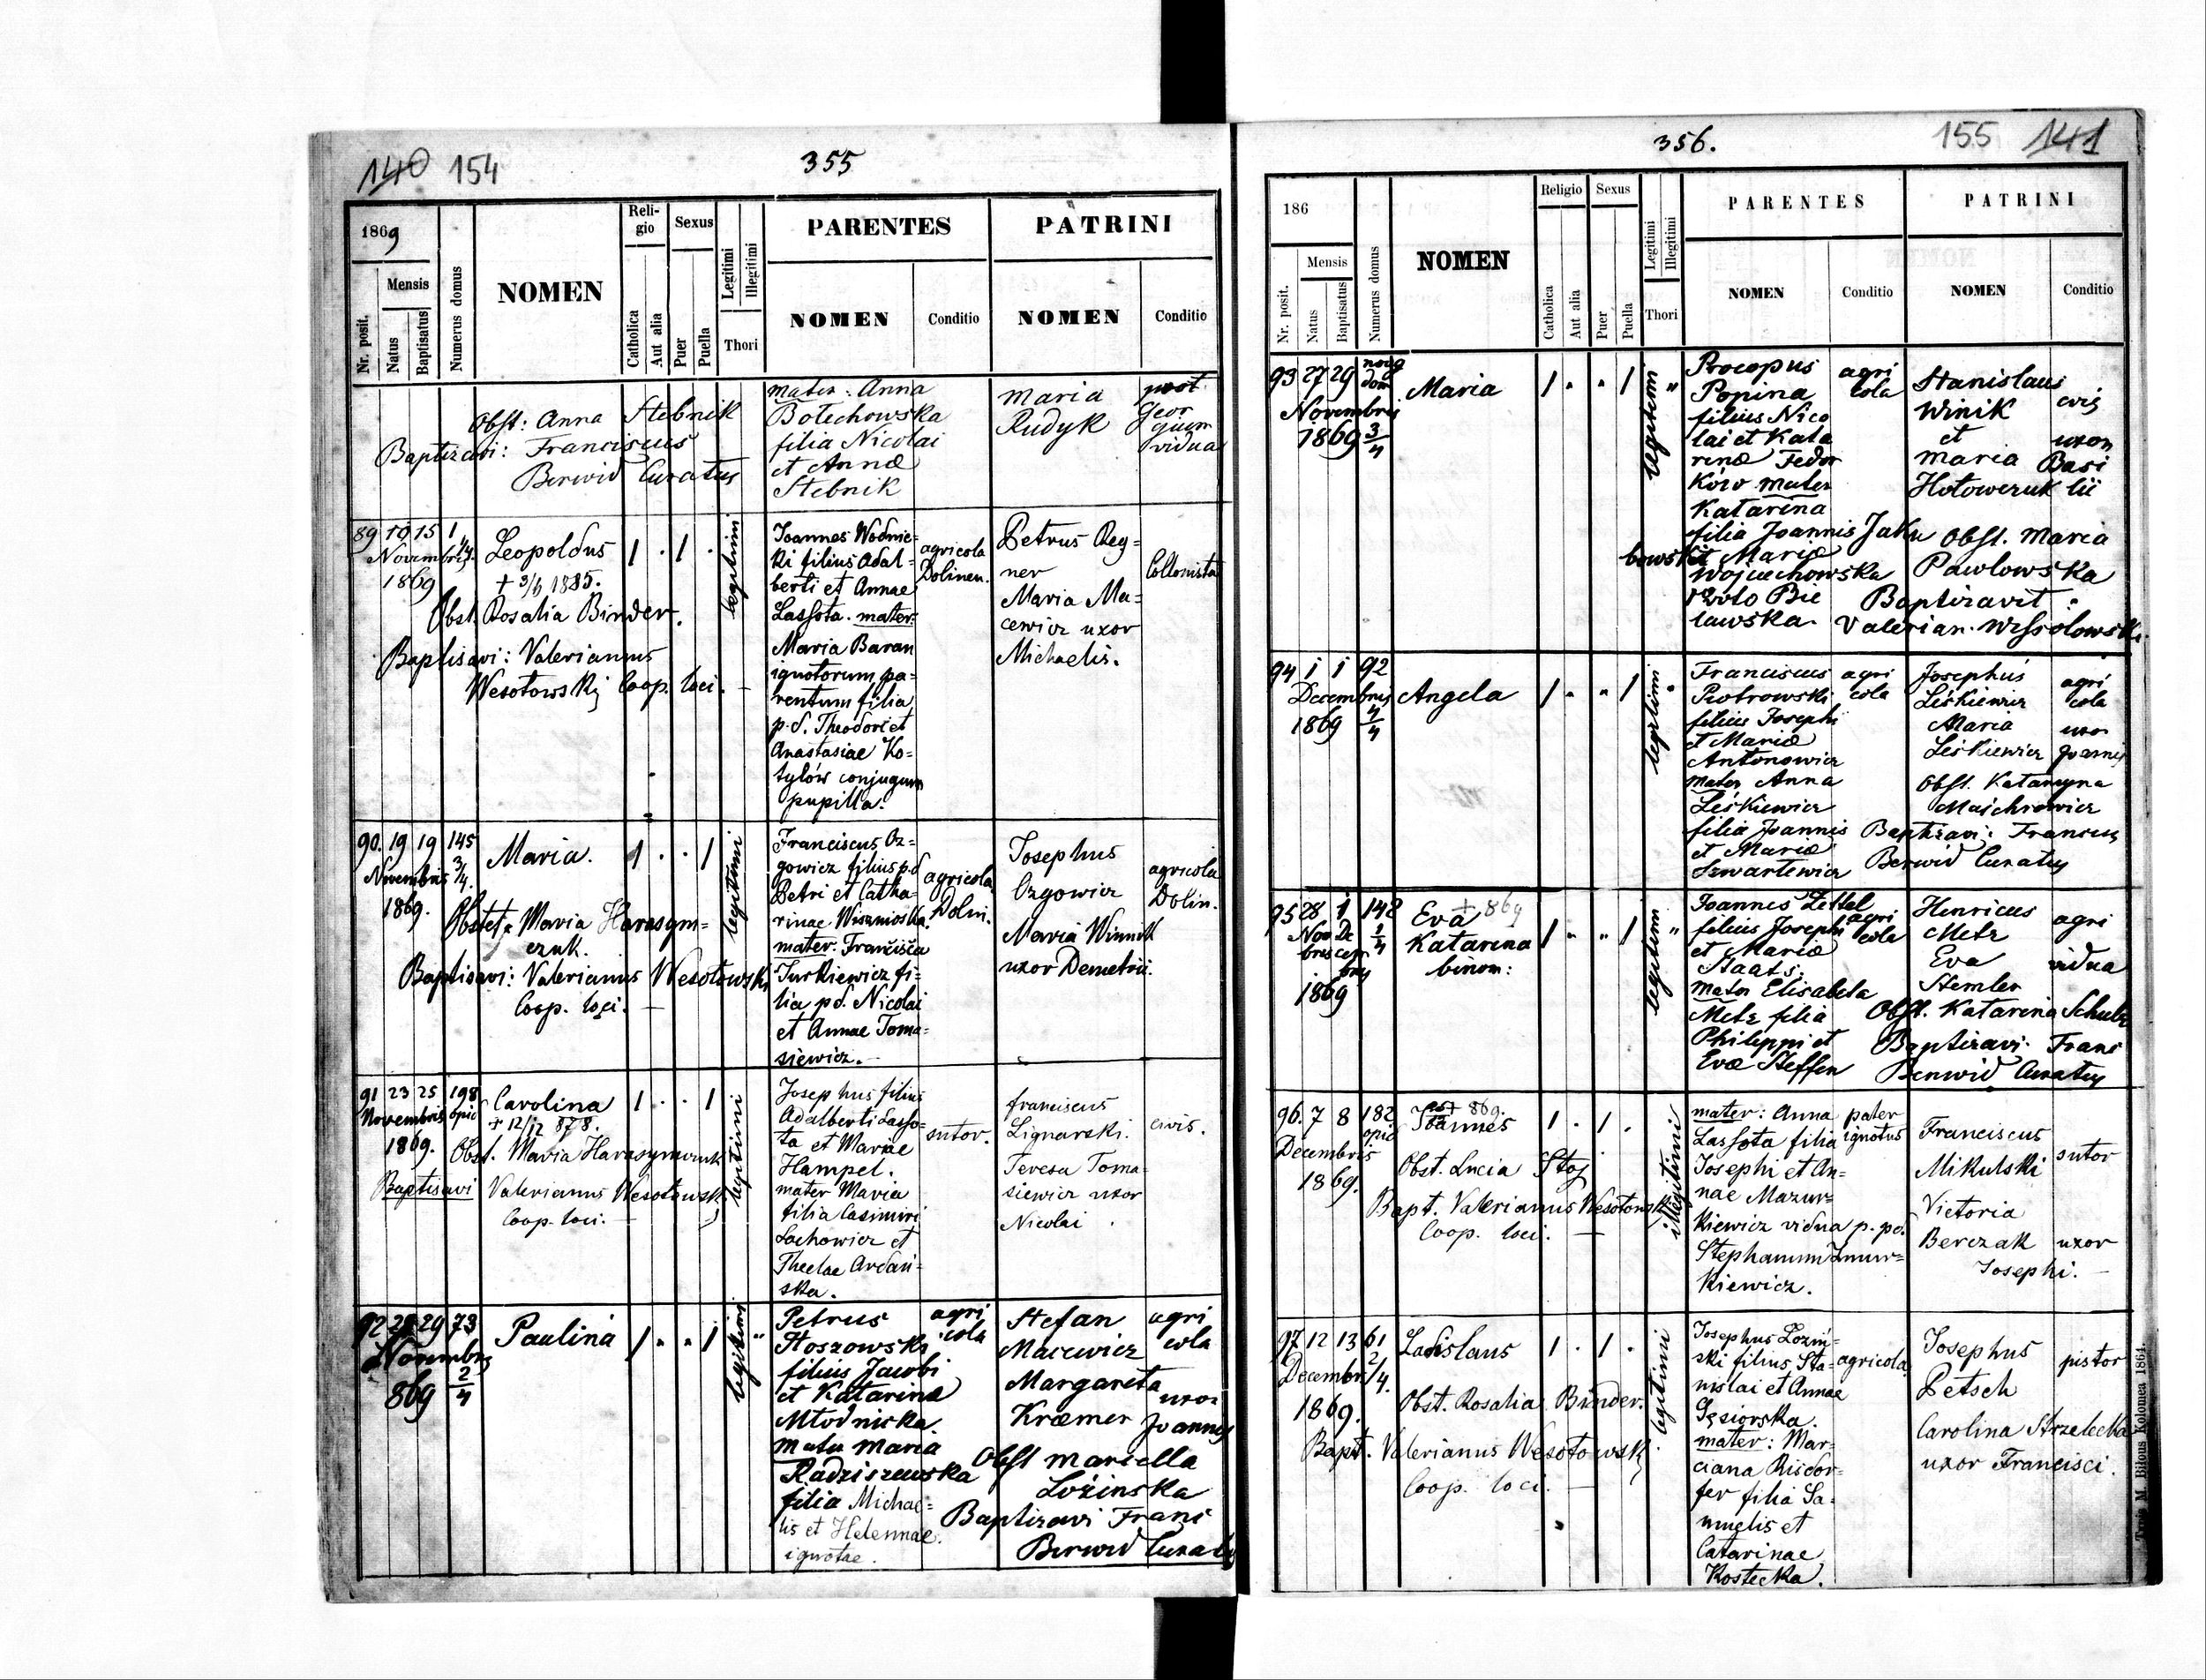 140 154
355
1869
Nr. posit.
Mensis
Natus
Baptisatus
Numerus domus
NOMEN
Reli-
gio
Catholica
Aut alia
Sexus
Puer
Puella
Legitimi
Illegitimi
Thori
PARENTES
NOMEN
Conditio
PATRINI
NOMEN
Conditio
Obst: Anna Stebnik
Baptizavi: Franciscus
Berwid Curatus
mater: Anna
Bolechowska
filia Nicolai
et Annæ
Stebnik
Maria
Rudyk
post
Geor
gium
vidua
89 10 15 1
Novembris
1869
Leopoldus
+ 3/6 1885.
Obst. Rosalia Binder.
Baptisavi: Valerianus
Wesołowskj Coop. loci.
legitimi
Joannes Wodnic-
ki filius Adal-
berti et Annae
Lassota. mater:
Maria Baran
ignotorum pa-
rentum filia
p.d. Theodori et
Anastasiae Ko-
tylów conjugum
pupilla.
agricola
Dolinen.
Petrus Reg-
ner
Maria Ma-
cewicz uxor
Michaelis.
Collonista
90. 19 19 145
Novembris 3/4.
1869.
Maria.
Obstet. Maria Harasym-
czuk.
Baptisavi: Valerianus Wesołowski
Coop. loci.
legitimi
Franciscus Oz-
gowicz filius p.d
Petri et Catha-
rinae Wisznioska.
mater: Francisca
Turkiewicz fi-
lia pd. Nicolai
et Annae Toma-
siewicz.
agricola
Dolin.
Josephus
Ozgowicz
Maria Winnik
uxor Demetrii.
agricola
Dolin.
91 23 25 198
Novembris opic
1869.
Carolina
+ 12/12 878.
Obst. Maria Harasymczuk
Baptisavi Valerianus Wesołowskj
Coop. loci.
legitimi
Josephus filius
Adalberti Lasso-
ta et Mariae
Hampel.
mater Maria
filia Casimiri
Lachowicz et
Theclae Ardań-
ska.
sutor.
franciscus
Lignarski.
Teresa Toma-
siewicz uxor
Nicolai
civis.
92 29 73
Novembris
869 2/4
Paulina
legitimi
Petrus
Hoszowski
filius Jacobi
et Katarinæ
Młodnicka.
mater Maria
Radziszewska
filia Michae-
lis et Helennae
ignotae.
agri
cola
Stefan
Macewicz
Margareta
Kræmer
agri
cola
uxor
Joannis
Obst Mariella
Łozinska
Baptizavi Franc
Berwid Curatus
356.
155 141
186
Nr. posit.
Mensis
Natus
Baptisatus
Numerus domus
NOMEN
Religio
Catholica
Aut alia
Sexus
Puer
Puella
Legitimi
Illegitimi
Thori
PARENTES
NOMEN
Conditio
PATRINI
NOMEN
Conditio
93 27 29
Novembris
1869 3/4
Maria
legitimi
Procopus
Popina
filius Nico
lai et Kata
rinæ Fedor
ków mater
Katarina
filia Joannis Jaku
bowski
et Mariæ
Wojciechowska
Bie
lawska.
agri
cola
Stanislaus
Winik
et
Maria
Hołowczuk
uxor
Basi
lii
Obst. Maria
Pawłowska
Baptizavit:
Valerian. Wessolowski.
94 1 1 92
Decembris
1869 4/4
Angela
legitimi
Franciscus
Piotrowski
filius Josephi
et Mariæ
Antonowicz
mater Anna
Leśkiewicz
filia Joannis
et Mariæ
Szwartewicz
agri
cola
Josephus
Leśkiewicz
Maria
Leśkiewicz
agri
cola
uxor
Joannis
Obst. Katarzyna
Majchrowicz
Baptizavi: Franciscus
Berwid Curatus
95 28 1 142
Nov De
bris cem
bris
1869
Eva + 869
Katarina
binom:
legitimi
Joannes Zettel
filius Josephi
et Mariæ
Staats.
mater Elisabeta
Metz filia
Philippi et
Evæ Steffen
agri
cola
Henricus
Metz
Eva
Stemler
agri
vidua
Obst. Katarina Schulz
Baptizavi. Franc
Berwid Curatus
96. 7 8 182
Decembris opic
1869.
Joannes
869.
Obst. Lucia Stoj
Bapt. Valerianus Wesołowskj
Coop. loci.
illegitimi
mater: Anna
Lassota filia
Josephi et An-
nae Mazur-
kiewicz vidua p. pd.
Stephanum Zmur-
kiewicz.
pater
ignotus
Franciscus
Mikulski
Victoria
Berczak uxor
Josephi.
sutor
97 12 13 61
Decembr. 2/4.
1869.
Ladislaus
Obst. Rosalia Binder.
Bapt. Valerianus Wesołowskj.
Coop. loci.
legitimi
Josephus Lozin-
ski filius Sta-
nislai et Annae
Gąsiorska.
mater: Mar-
ciana Risdor-
fer filia Sa-
muelis et
Catarinae
Kostecka.
agricola
Josephus
Petsch
Carolina Strzelecka
uxor Francisci.
pistor
Typis M. Bilous Kolomea 1864.